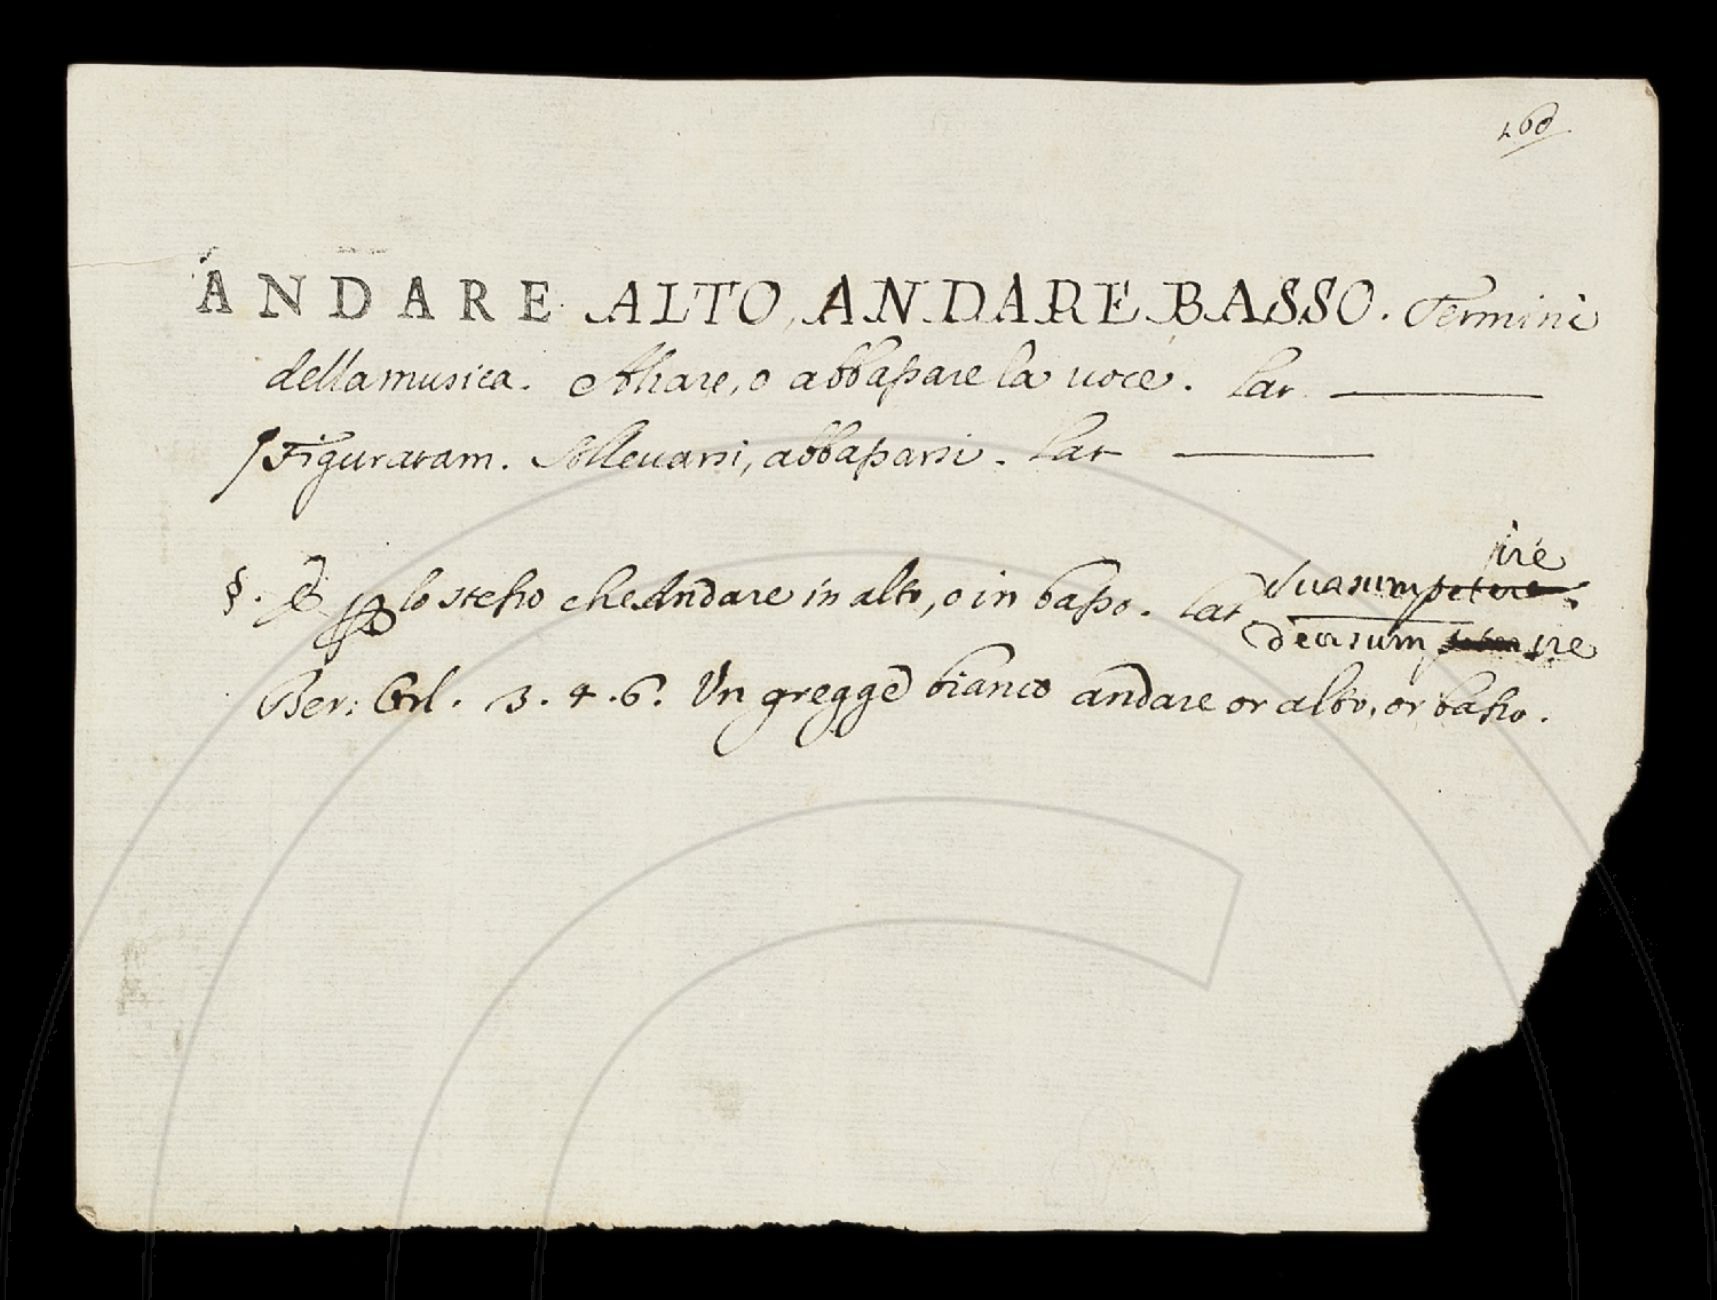 260
ANDARE ALTO, ANDARE BASSO. Termini
della musica. Alzare, o abbassare la uoce. Lat.
Figuratam. Solleuarsi, abbassarsi. Lat
ire
§. E lo stesso che Andare in alto, o in basso. Lat sursum petere
deorsum ire
Ber: Orl. 3. 4. 6. Un gregge bianco andare or alto, or basso.